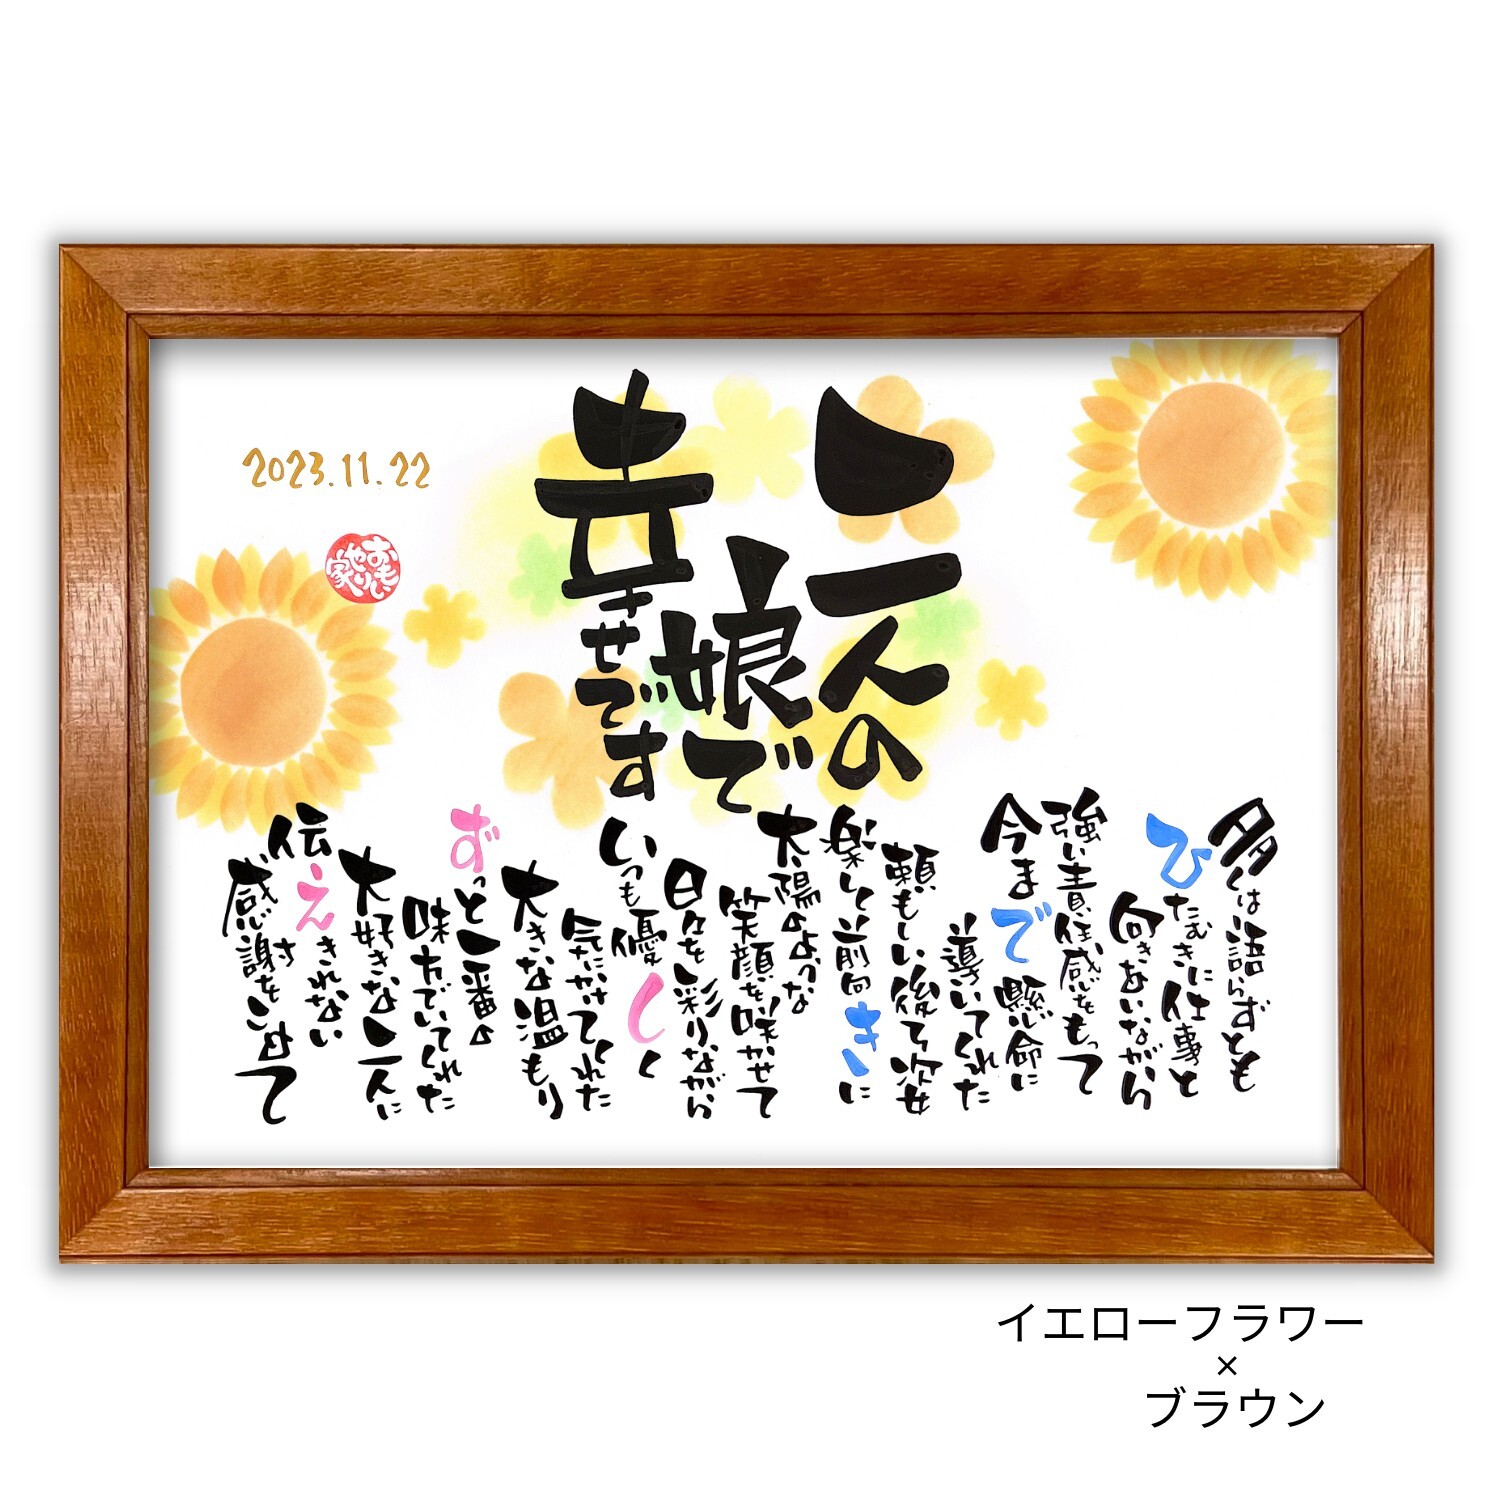 二人の
娘で
幸せです
2023.11.22
おもい
やり
家
多くは語らずとも
ひたむきに仕事と
向きあいながら
強い責任感をもって
今まで懸命に
導いてくれた
頼もしい後ろ姿
楽しく前向きに
太陽のような
笑顔を咲かせて
日々を彩りながら
いつも優しく
気にかけてくれた
大きな温もり
ずっと一番の
味方でいてくれた
大好きな二人に
伝えきれない
感謝をこめて
イエローフラワー
×
ブラウン